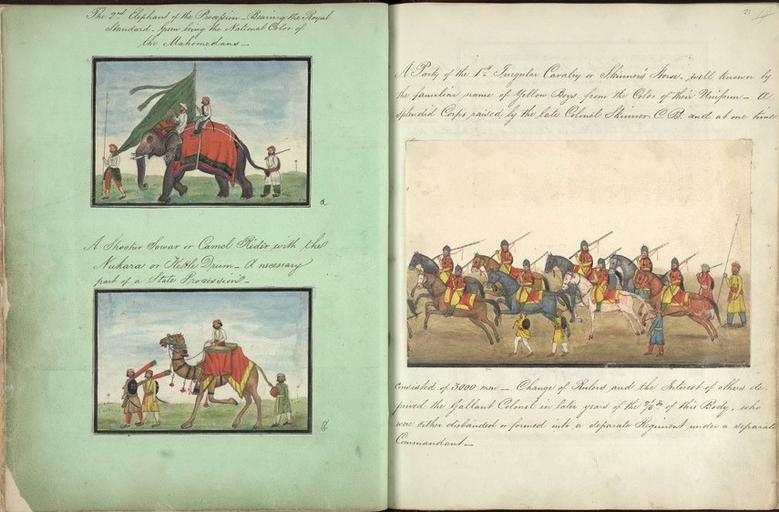 The 2nd Elephant of the Procession - Bearing the Royal
Standard - Green being the National Color of
the Mahomedans -
a
A Shooter Sowar or Camel Rider with the
Nukara or Kettle Drum - A necessary
part of a State Procession -
b
A Party of the 1st Irregular Cavalry or Skinner's Horse - well known by
the familiar name of Yellow Boys, from the Color of their Uniform - A
splendid Corps raised by the late Colonel Skinner C.B. and at one time
consisted of 3000 men - Change of Rulers and the Interest of others de-
prived the Gallant Colonel in later years of the of this Body, who
was either disbanded or formed into a separate Regiment under a separate
Commandant -